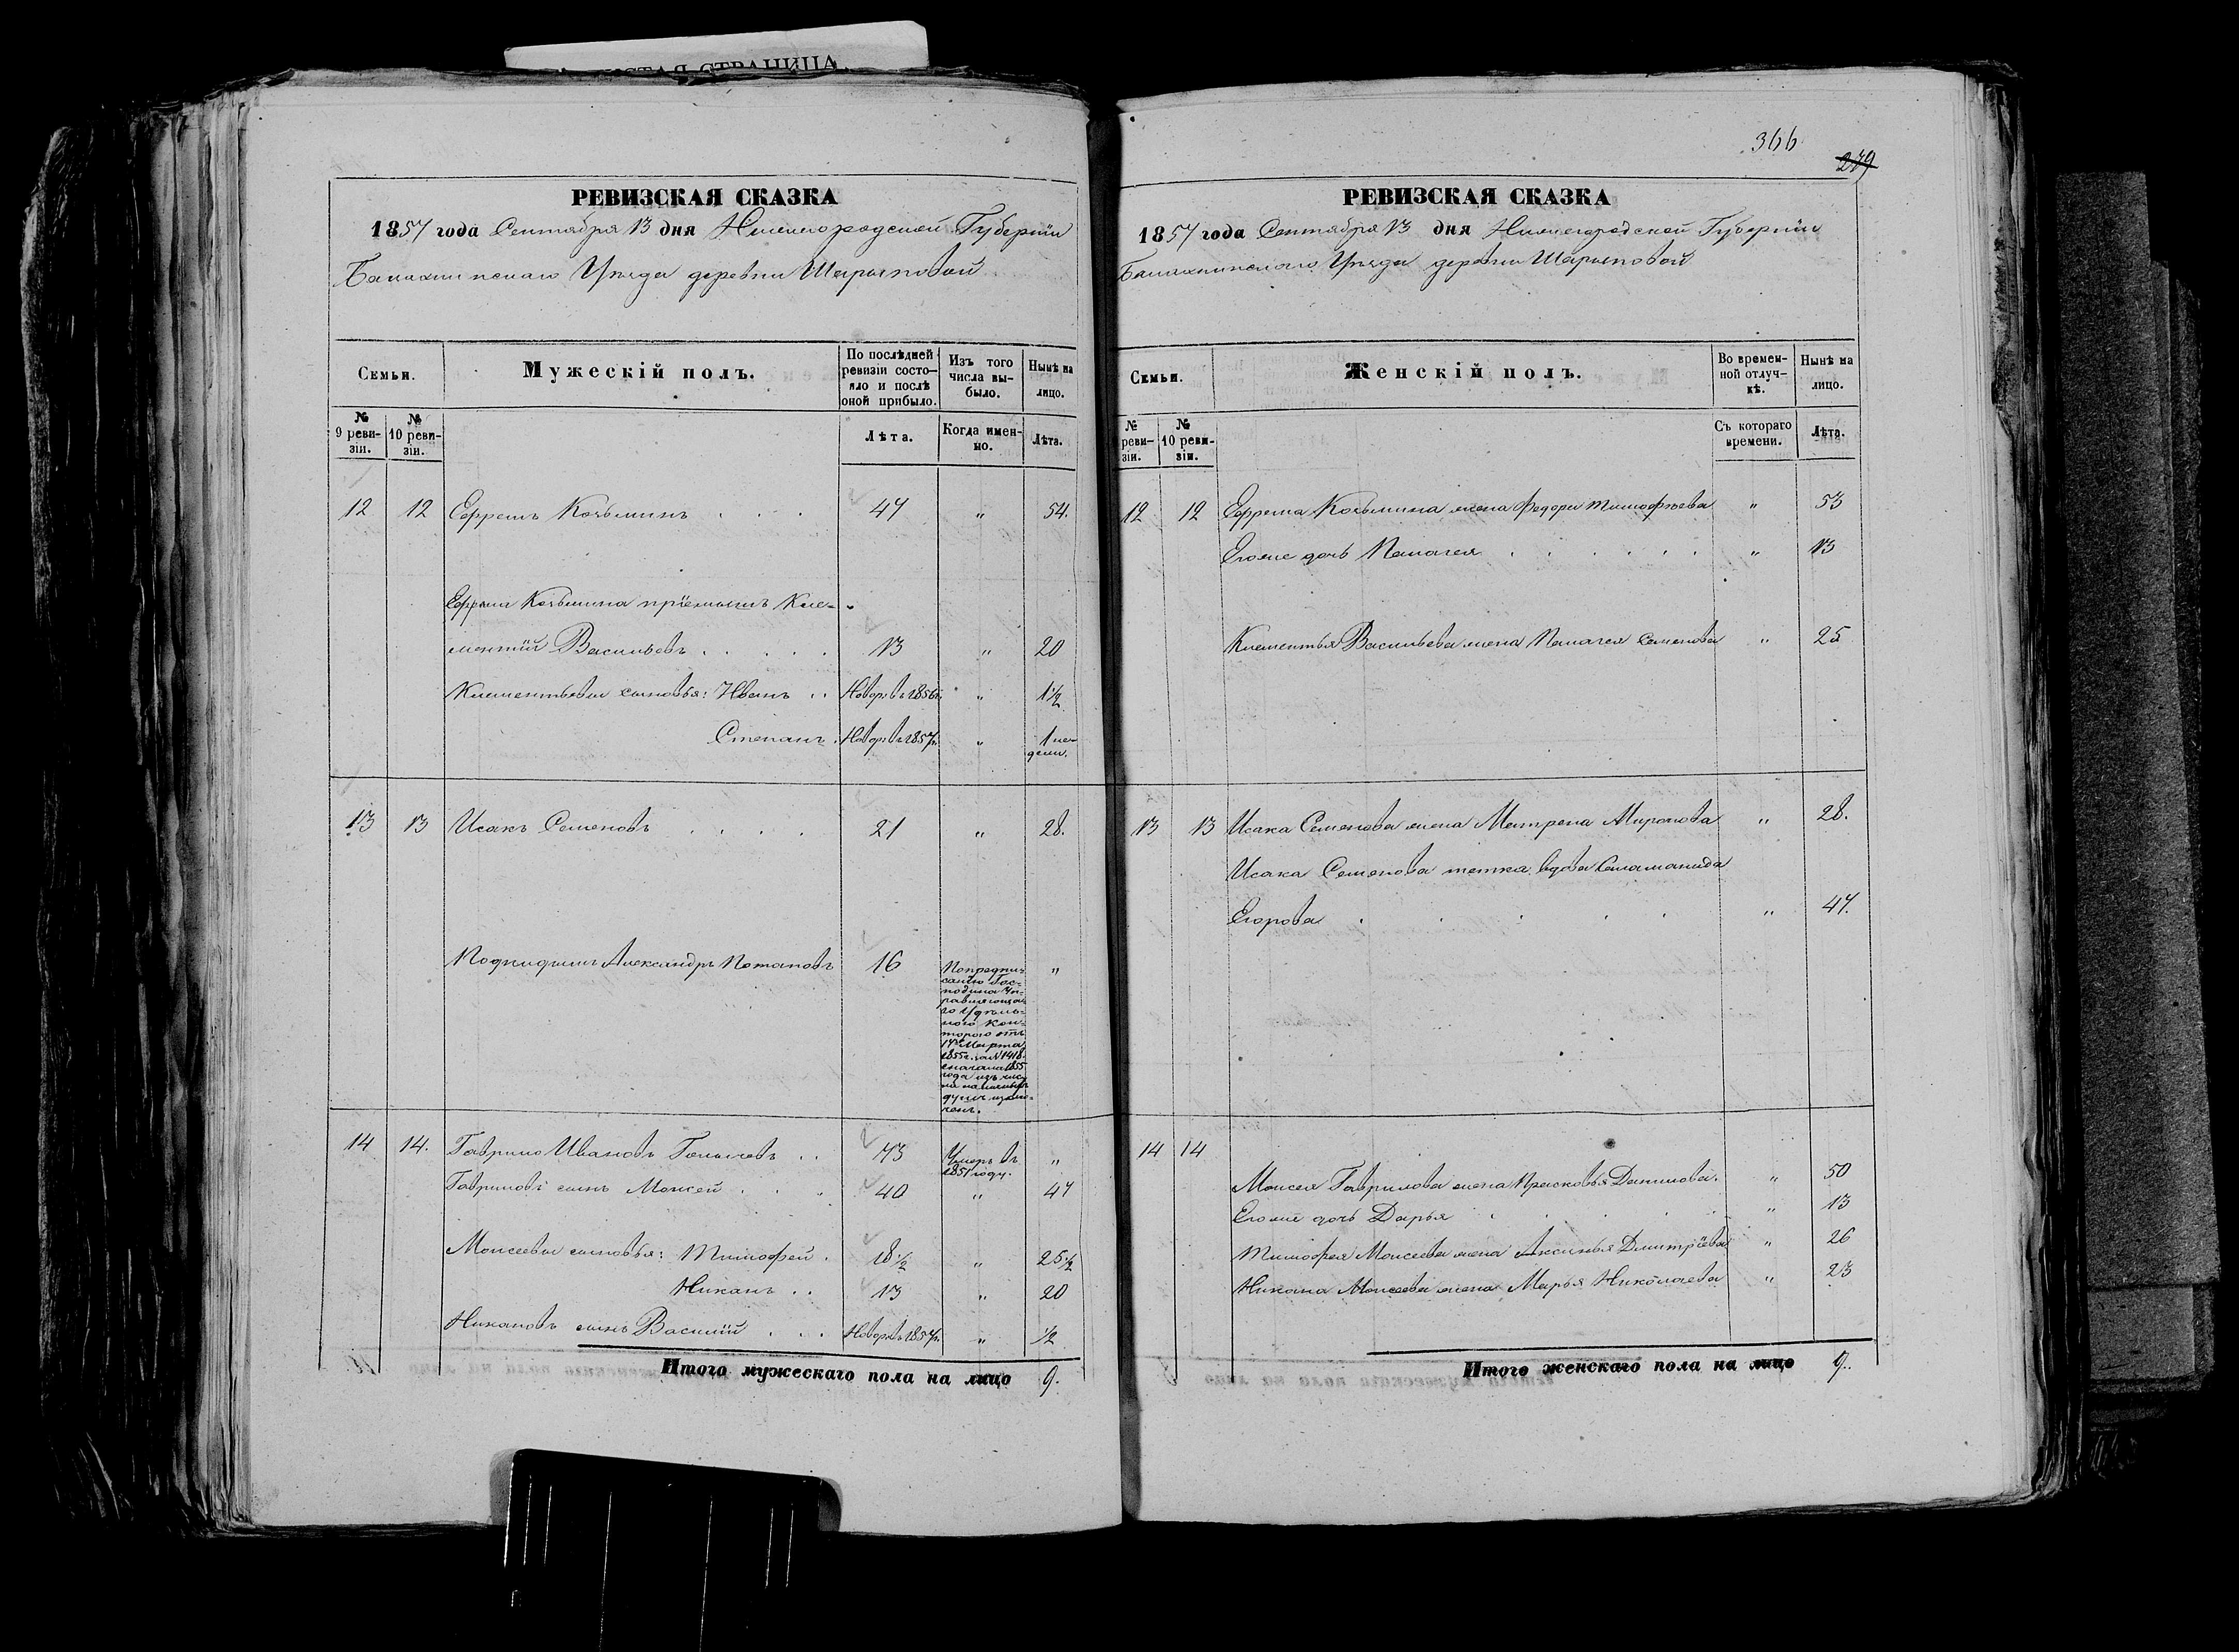 ИСТАЯ СТРАНИЦА
РЕВИЗСКАЯ СКАЗКА
1857 года Сентября 13 дня Нижегородской Губернiи
Балахнинскаго Уѣзда деревни Шарыповой
Семьи.
Мужескiй полъ.
По послѣдней
ревизiи состо-
яло и послѣ
оной прибыло.
Изъ того
числа вы-
было.
Нынѣ на
лицо.
№
9 реви-
зiи.
№
10 реви-
зiи.
Лѣта.
Когда имен-
но.
Лѣта.
12 12 Ефремъ Козьминъ . . . 47 " 54.
Ефрема Козьмина прiемышъ Кле-
ментiй Васильевъ . . . . . 13 " 20
Клементьевы сыновья: Иванъ . . Новор. въ 1856г. " 1½
Степанъ . Новор. въ 1857г. " 1 не-
дели.
13 13 Исакъ Семеновъ . . . . 21 " 28.
Подкидышъ Александръ Потаповъ 16 "
По предпи-
санiю Гос-
подина Уп-
равляюща-
го Удѣль-
ной Кон-
торою отъ
17го Марта
1855 г. за № 1418
сначала 1855
года изъ чис-
ла
душъ исклю-
ченъ.
14 14. Гаврило Ивановъ Голычевъ . . 73 Умеръ въ "
1851 году.
Гавриловъ сынъ Моисей . . . 40 " 47
Моисеевы сыновья: Тимофей . 18½ " 25½
Никанъ . . 13 " 20
Никановъ сынъ Василiй . . . Новор. въ 1857г. " ½
Итого мужескаго пола на лицо 9.
366
279
РЕВИЗСКАЯ СКАЗКА
1857 года Сентября 13 дня Нижегородской Губернiи
Балахнинскаго Уѣзда деревни Шарыповой
Семьи.
Женскiй полъ.
Во времен-
ной отлуч-
кѣ.
Нынѣ на
лицо.
№
реви-
зiи.
№
10 реви-
зiи.
Съ котораго
времени.
Лѣта.
12 12 Ефрема Козьмина жена Федора Тимофѣева " 53
Егоже дочь Палагея . . . . . . " 13
Клементья Васильева жена Палагея Семенова " 25
13 13 Исака Семенова жена Матрена Миронова " 28.
Исака Семенова тетка вдова Саламанида
Егорова . . . . . " 47.
14 14
Моисея Гаврилова жена Прасковья Данилова. " 50
Егоже дочь Дарья . . . . " 13
Тимофея Моисеева жена Аксинья Дмитрiева " 26
Никана Моисеева жена Марья Николаева " 23
Итого женскаго пола на лицо 9.